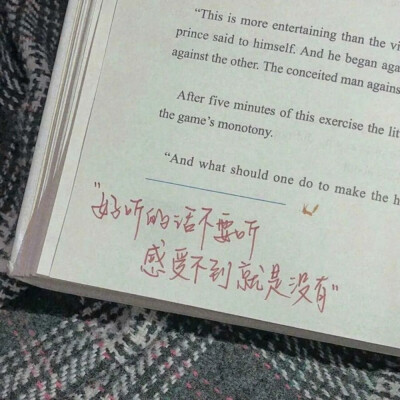 "This is more entertaining than the vi
prince said to himself. And he began aga
against the other. The conceited man agains
After five minutes of this exercise the lit
the game's monotony.
"And what should one do to make the h
"好听的话不要听
感受不到就是没有"